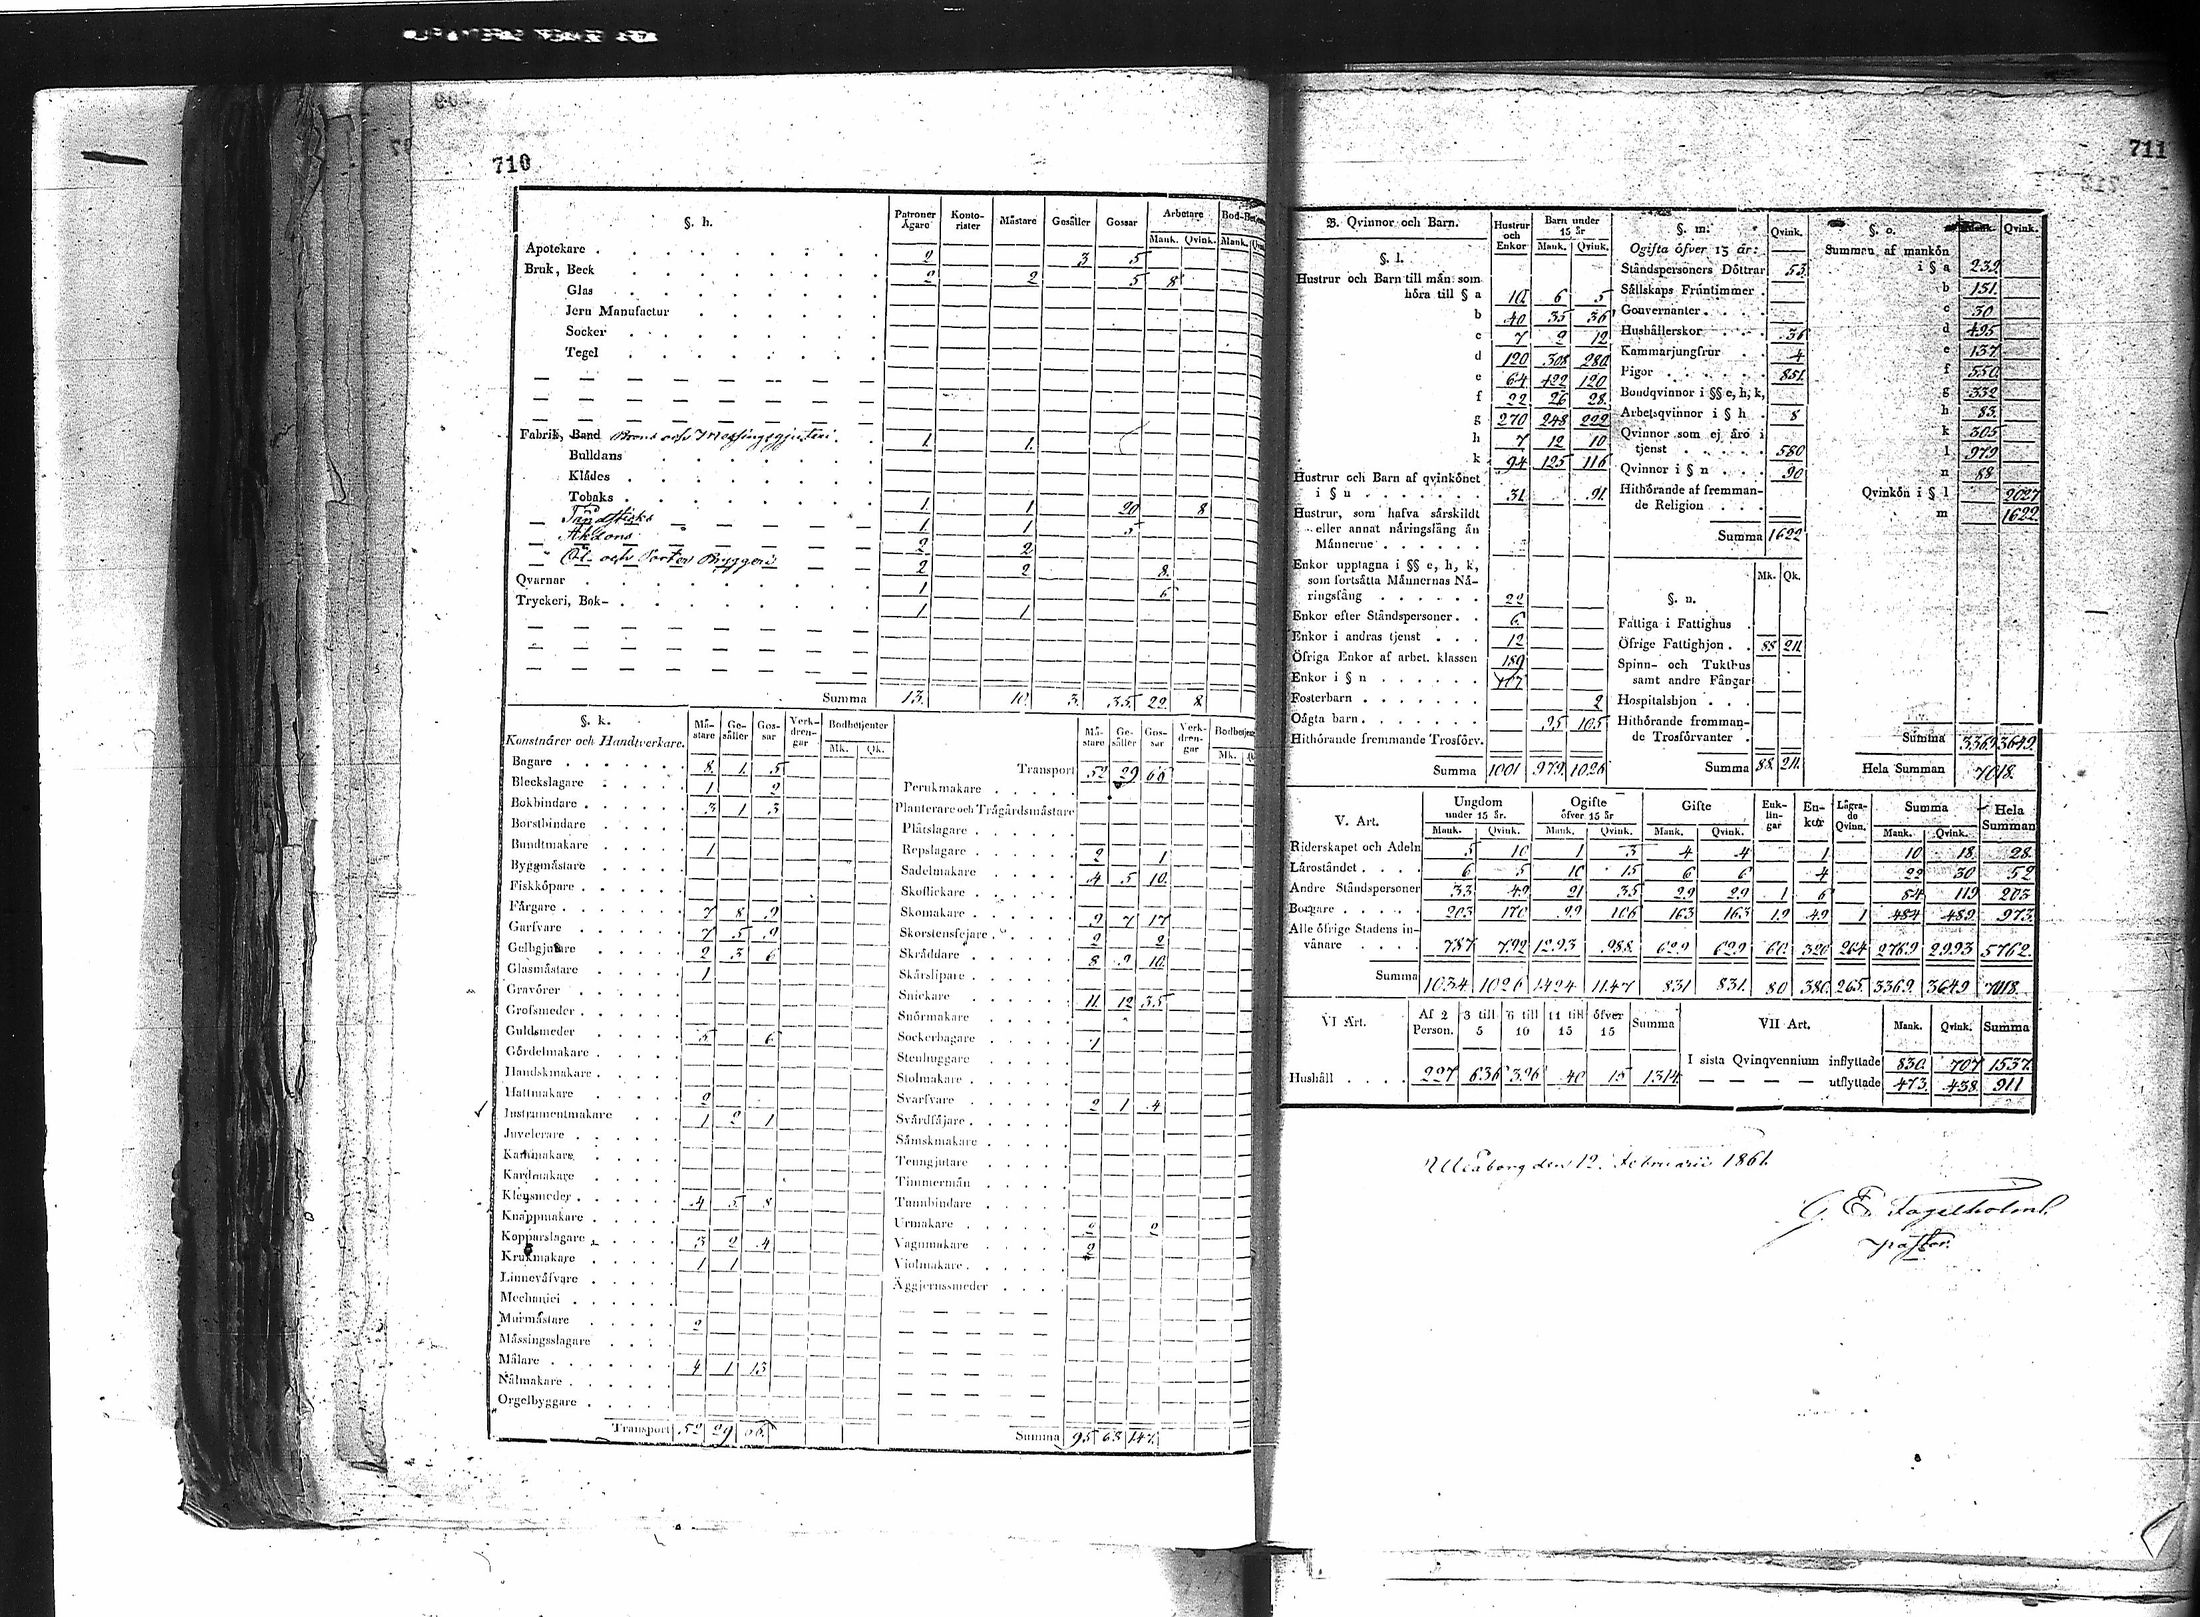 710
§. h. Patroner Ägare Kontorister Mästare Gesäller Gossar Arbetare Mank. Qvink. Bod- Mank.
Apotekare 2 3 5
Bruk, Beck 2 2 5 8
Glas
Jern Manufactur
Socker
Tegel
Fabrik, Band Brons och Messingsgjuteri 1 1
Bulldans
Klädes
Tobaks 1 1 20 8
Tändsticks 1 1 5
Åkdons 2 2
Öl och Porter Bryggeri 2 2 8
Qvarnar 1 6
Tryckeri, Bok- 1 1
Summa 13. 10. 3. 35. 22. 8
§. k. Konstnärer och Handtverkare. Mästare Gesäller Gossar Verkdrengar Bodbetjenter Mk. Qk.
Bagare 8. 1. 5
Bleckslagare 1 2
Bokbindare 3 1 3
Borstbindare
Bundtmakare 1
Byggmästare
Fiskköpare
Färgare 7 8 9
Garfvare 7 5 9
Gelbgjutare 2 3 6
Glasmästare 1
Gravörer
Grofsmeder
Guldsmeder 5 6
Gördelmakare
Handskmakare
Hattmakare 2
Instrumentmakare 1 2 1
Juvelerare
Kammakare
Kardmakare
Klensmeder 4 5 8
Knappmakare
Kopparslagare 3 2 4
Krukmakare 1 1
Linneväfvare
Mechanici
Murmästare 2
Mässingsslagare
Målare 4 1 13
Nålmakare
Orgelbyggare
Transport 52 29 66
Mästare Gesäller Gossar Verkdrengar Mk.
Transport 52 29 66
Perukmakare
Planterare och Trägårdsmästare
Plåtslagare
Repslagare 2 1
Sadelmakare 4 5 10
Skoflickare
Skomakare 9 7 17
Skorstensfejare 2 2
Skräddare 8 9 10
Skärslipare
Snickare 11 12 35
Snörmakare
Sockerbagare 1
Stenhuggare
Stolmakare
Svarfvare 2 1 4
Svärdfäjare
Sämskmakare
Tenngjutare
Timmermän
Tunnbindare
Urmakare 2 2
Vagnmakare 2
Violmakare
Äggjernssmeder
Summa 95 63 147
711
B. Qvinnor och Barn. Hustrur och Enkor Barn under 15 år Mank. Qvink.
§. l.
Hustrur och Barn till män som
höra till § a 10 6 5
b 40 35 36
c 7 2 12
d 120 308 280
e 64 122 120
f 22 26 28
g 270 248 222
h 7 12 10
k 94 125 116
Hustrur och Barn af qvinkönet
i § n 31 91
Hustrur, som hafva särskildt
eller annat näringsfång än
Männerne
Enkor upptagna i §§ e, h, k,
som fortsätta Männernas Nä-
ringsfång 22
Enkor efter Ståndspersoner 6
Enkor i andras tjenst 12
Öfriga Enkor af arbet. klassen 189
Enkor i § n 107
Fosterbarn 2
Oägta barn 95 105
Hithörande fremmande Trosförv.
Summa 1001 979. 1026
§. m. Qvink.
Ogifta öfver 15 år:
Ståndspersoners Döttrar 53
Sällskaps Fruntimmer
Gouvernanter
Hushållerskor 36
Kammarjungfrur 4
Pigor 851
Bondqvinnor i §§ e, h, k,
Arbetsqvinnor i § h 8
Qvinnor som ej äro i
tjenst 580
Qvinnor i § n 90
Hithörande af fremman-
de Religion
Summa 1622
Mk. Qk.
§. n.
Fattiga i Fattighus
Öfrige Fattighjon 88 211
Spinn- och Tukthus
samt andre Fångar
Hospitalshjon
Hithörande fremman-
de Trosförvanter
Summa 88 211
§. o. Qvink.
Summan af mankön
i § a 239
b 151
c 30
d 495
e 137
f 530
g 332
h 83
k 305
l 979
n 88
Qvinkön i § l 2027
m 1622
Summa 3369 3649
Hela Summan 7018.
V. Art. Ungdom under 15 år. Ogifte öfver 15 år Gifte Enklingar Enkor Lägrade Qvinn. Summa Hela Summan
Mank. Qvink. Mank. Qvink. Mank. Qvink. Mank. Qvink.
Ridderskapet och Adeln 5 10 1 3 4 4 1 10 18 28
Läroståndet 6 5 10 15 6 6 4 22 30 52
Andre Ståndspersoner 33 49 21 35 29 29 1 6 84 119 203
Borgare 203 170 99 106 163 163 19 49 1 484 489 973
Alle öfrige Stadens in-
vånare 787 792 1293 988 629 629 60 320 264 2769 2993 5762
Summa 1034 1026 1424 1147 831 831 80 380 265 3369 3649 7018
VI Art. Af 2 Person. 3 till 5 6 till 10 11 till 15 öfver 15 Summa
Hushåll 297 636 326 40 15 1314
VII Art. Mank. Qvink. Summa
I sista Qvinqvennium inflyttade 830 707 1537
— — — — utflyttade 473 438 911
Uleåborg den 12 Februarii 1861.
G. E. Fagerholm
pastor.